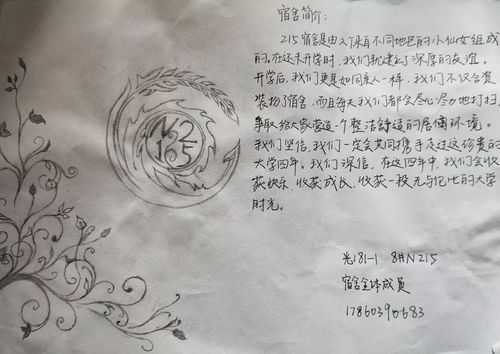 宿舍简介:
215宿舍是由八个来自不同地区的小仙女组成
的。在还未开学时,我们就建立了深厚的友谊。
开学后,我们更是如同亲人一样,我们不仅合资
装扮了宿舍,而且每天我们都会尽心尽力地打扫,
争取给大家营造一个整洁舒适的居住环境。
我们坚信,我们一定会共同携手度过这珍贵的
大学四年。我们深信,在这四年中,我们会收
获快乐,收获成长,收获一段无与伦比的大学
时光。
N2
165
光181-1 8#N215
宿舍全体成员